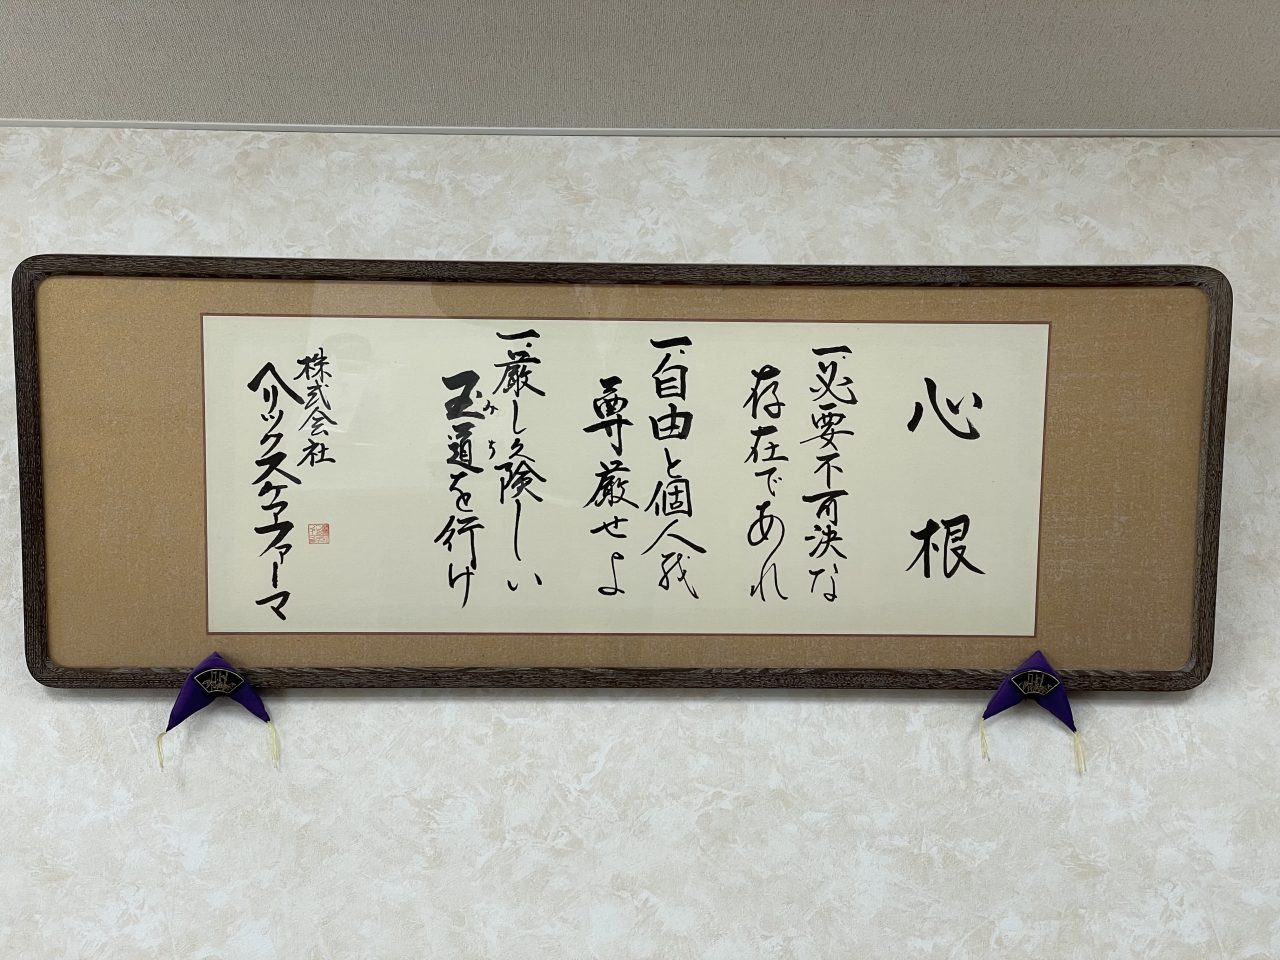 心根
一、必要不可決な
存在であれ
一、自由と個人
尊厳せよ
一、厳しく険しい
玉道を行け
みち
株式会社
ヘリックスケアファーマ